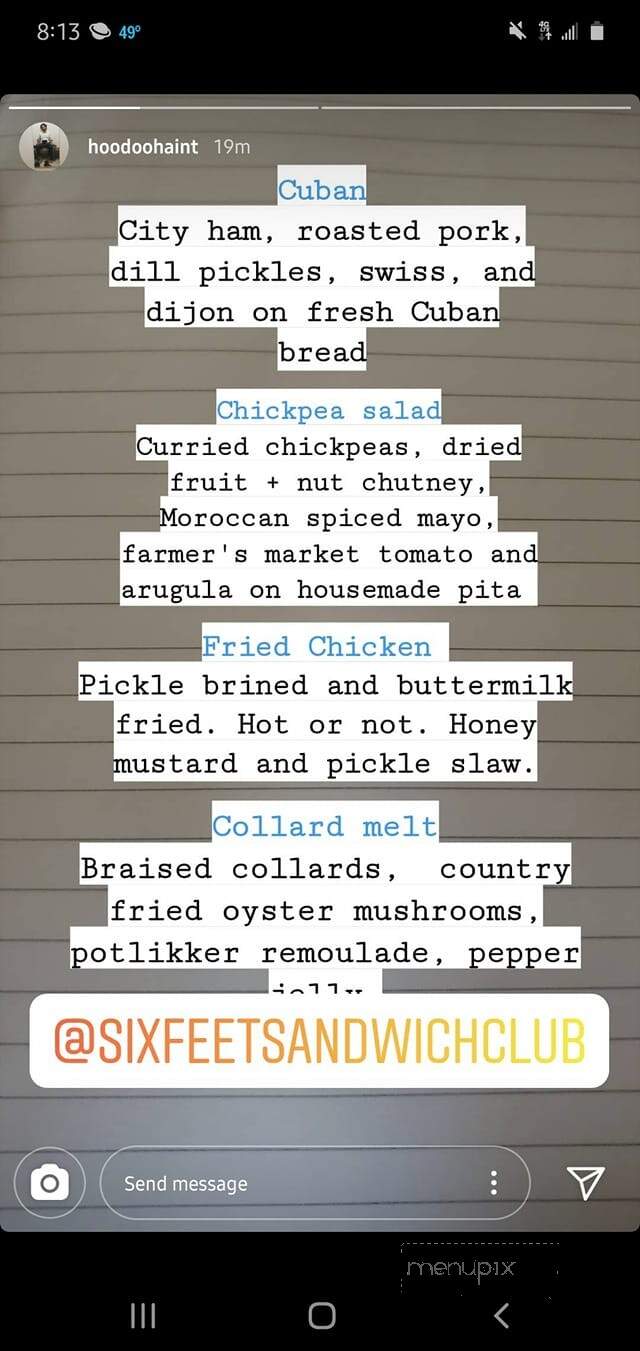 8:13 49°
4G
hoodoohaint 19m
Cuban
City ham, roasted pork,
dill pickles, swiss, and
dijon on fresh Cuban
bread
Chickpea salad
Curried chickpeas, dried
fruit + nut chutney,
Moroccan spiced mayo,
farmer's market tomato and
arugula on housemade pita
Fried Chicken
Pickle brined and buttermilk
fried. Hot or not. Honey
mustard and pickle slaw.
Collard melt
Braised collards, country
fried oyster mushrooms,
potlikker remoulade, pepper
jelly
@SIXFEETSANDWICHCLUB
Send message
menupix